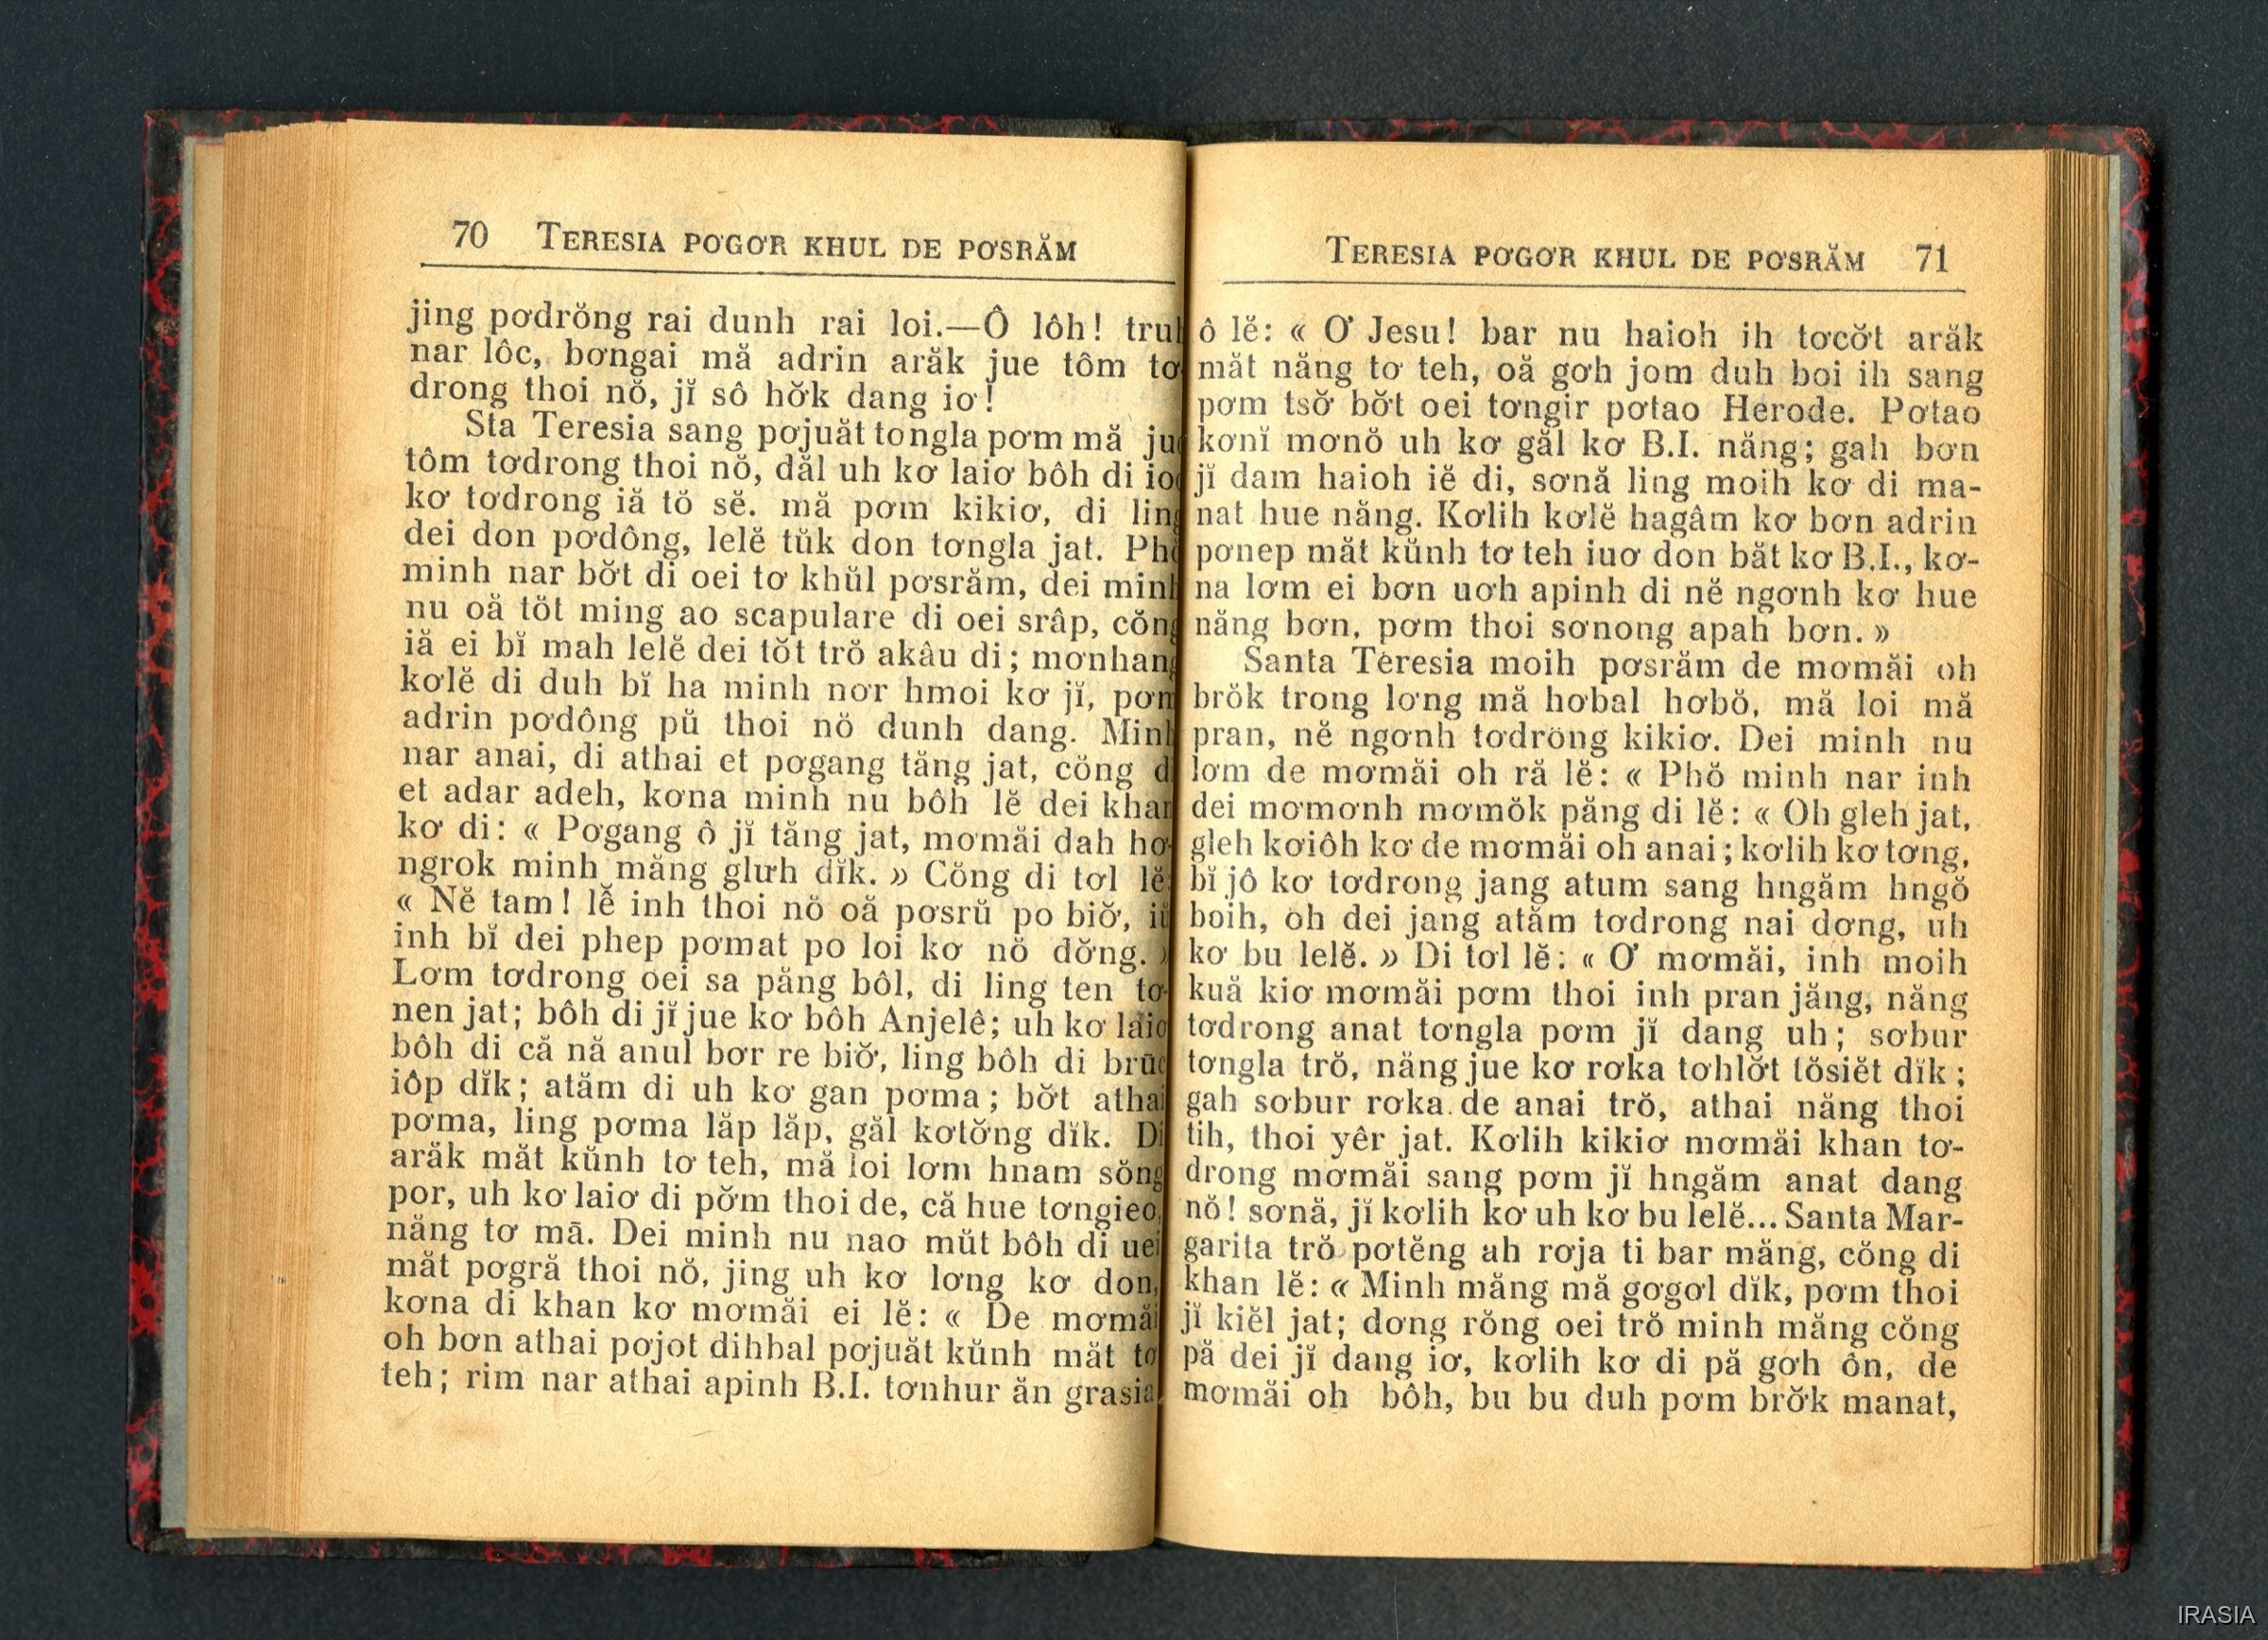 70 TERESIA PƠGƠR KHUL DE PƠSRĂM
jing pơdrŏng rai dunh rai loi.—Ô lôh!
nar lôc, bơngai mă adrin arăk jue tôm tơ
drong thoi nŏ, jĭ sô hơ̆k dang iơ!
Sta Teresia sang pơjuăt tơngla pơm mă
tôm tơdrong thoi nŏ, dăl uh kơ laiơ bôh di
kơ tơdrong iă tŏ sĕ. mă pơm kikiơ, di ling
dei don pơdông, lelĕ tŭk don tơngla jat. Phŏ
minh nar bơ̆t di oei tơ khŭl pơsrăm, dei minh
nu oă tŏt ming ao scapulare di oei srâp, cŏng
iă ei bĭ mah lelĕ dei tŏt trŏ akâu di; mơnhang
kơlĕ di duh bĭ ha minh nơr hmoi kơ jĭ, pơm
adrin pơdông pŭ thoi nŏ dunh dang. Minh
nar anai, di athai et pơgang tăng jat, cŏng di
et adar adeh, kơna minh nu bôh lĕ dei khan
kơ di: « Pơgang ô jĭ tăng jat, mơmăi dah hơ-
ngrok minh măng glưh dĭk. » Cŏng di tơl lĕ:
« Nĕ tam! lê̆ inh thoi nŏ oă pơsrŭ po biơ̆,
inh bĭ dei phep pơmat po loi kơ nŏ dơ̆ng. »
Lơm tơdrong oei sa păng bôl, di ling ten tơ-
nen jat; bôh di jĭ jue kơ bôh Anjelê; uh kơ laiơ
bôh di că nă anul bơr re biơ̆, ling bôh di
iôp dĭk; atăm di uh kơ gan pơma; bơ̆t athai
pơma, ling pơma lăp lăp, găl kơtơ̆ng dĭk. Di
arăk măt kŭnh tơ teh, mă loi lơm hnam sŏng
por, uh kơ laiơ di pơ̆m thoi de, că hue tơngieo,
năng tơ mā. Dei minh nu nao mŭt bôh di uei
măt pơgră thoi nŏ, jing uh kơ lơng kơ don,
kơna di khan kơ mơmăi ei lĕ: « De mơmăi
oh bơn athai pơjot dihbal pơjuăt kŭnh măt tơ
teh; rim nar athai apinh B.I. tơnhur ăn grasia,
TERESIA PƠGƠR KHUL DE PƠSRĂM 71
ô lĕ: « Ơ Jesu! bar nu haioh ih tơcơ̆t arăk
măt năng tơ teh, oă gơh jom duh boi ih sang
pơm tsơ̆ bơ̆t oei tơngir pơtao Herode. Pơtao
kơnĭ mơnŏ uh kơ găl kơ B.I. năng; gah bơn
jĭ dam haioh iĕ di, sơnă ling moih kơ di ma-
nat hue năng. Kơlih kơlĕ hagâm kơ bơn adrin
pơnep măt kŭnh tơ teh iuơ don băt kơ B.I., kơ-
na lơm ei bơn uơh apinh di nĕ ngơnh kơ hue
năng bơn, pơm thoi sơnong apah bơn. »
Santa Teresia moih pơsrăm de mơmăi oh
brŏk trong lơng mă hơbal hơbŏ, mă loi mă
pran, nĕ ngơnh tơdrŏng kikiơ. Dei minh nu
lơm de mơmăi oh ră lĕ: « Phŏ minh nar inh
dei mơmơnh mơmŏk păng di lĕ: « Oh gleh jat,
gleh kơiôh kơ de mơmăi oh anai; kơlih kơ tơng,
bĭ jô kơ tơdrong jang atum sang hngăm hngŏ
boih, oh dei jang atăm tơdrong nai dơng, uh
kơ bu lelĕ. » Di tơl lĕ: « Ơ mơmăi, inh moih
kuă kiơ mơmăi pơm thoi inh pran jăng, năng
tơdrong anat tơngla pơm jĭ dang uh; sơbur
tơngla trŏ, năng jue kơ rơka tơhlơ̆t lŏsiĕt dĭk;
gah sơbur rơka de anai trŏ, athai năng thoi
tih, thoi yêr jat. Kơlih kikiơ mơmăi khan tơ-
drong mơmăi sang pơm jĭ hngăm anat dang
nŏ! sơnă, jĭ kơlih kơ uh kơ bu lelĕ... Santa Mar-
garita trŏ pơtĕng ah rơja ti bar măng, cŏng di
khan lĕ: « Minh măng mă gơgơl dĭk, pơm thoi
jĭ kiĕl jat; dơng rŏng oei trŏ minh măng cŏng
pă dei jĭ dang iơ, kơlih kơ di pă gơh ôn, de
mơmăi oh bôh, bu bu duh pơm brơ̆k manat,
IRASIA